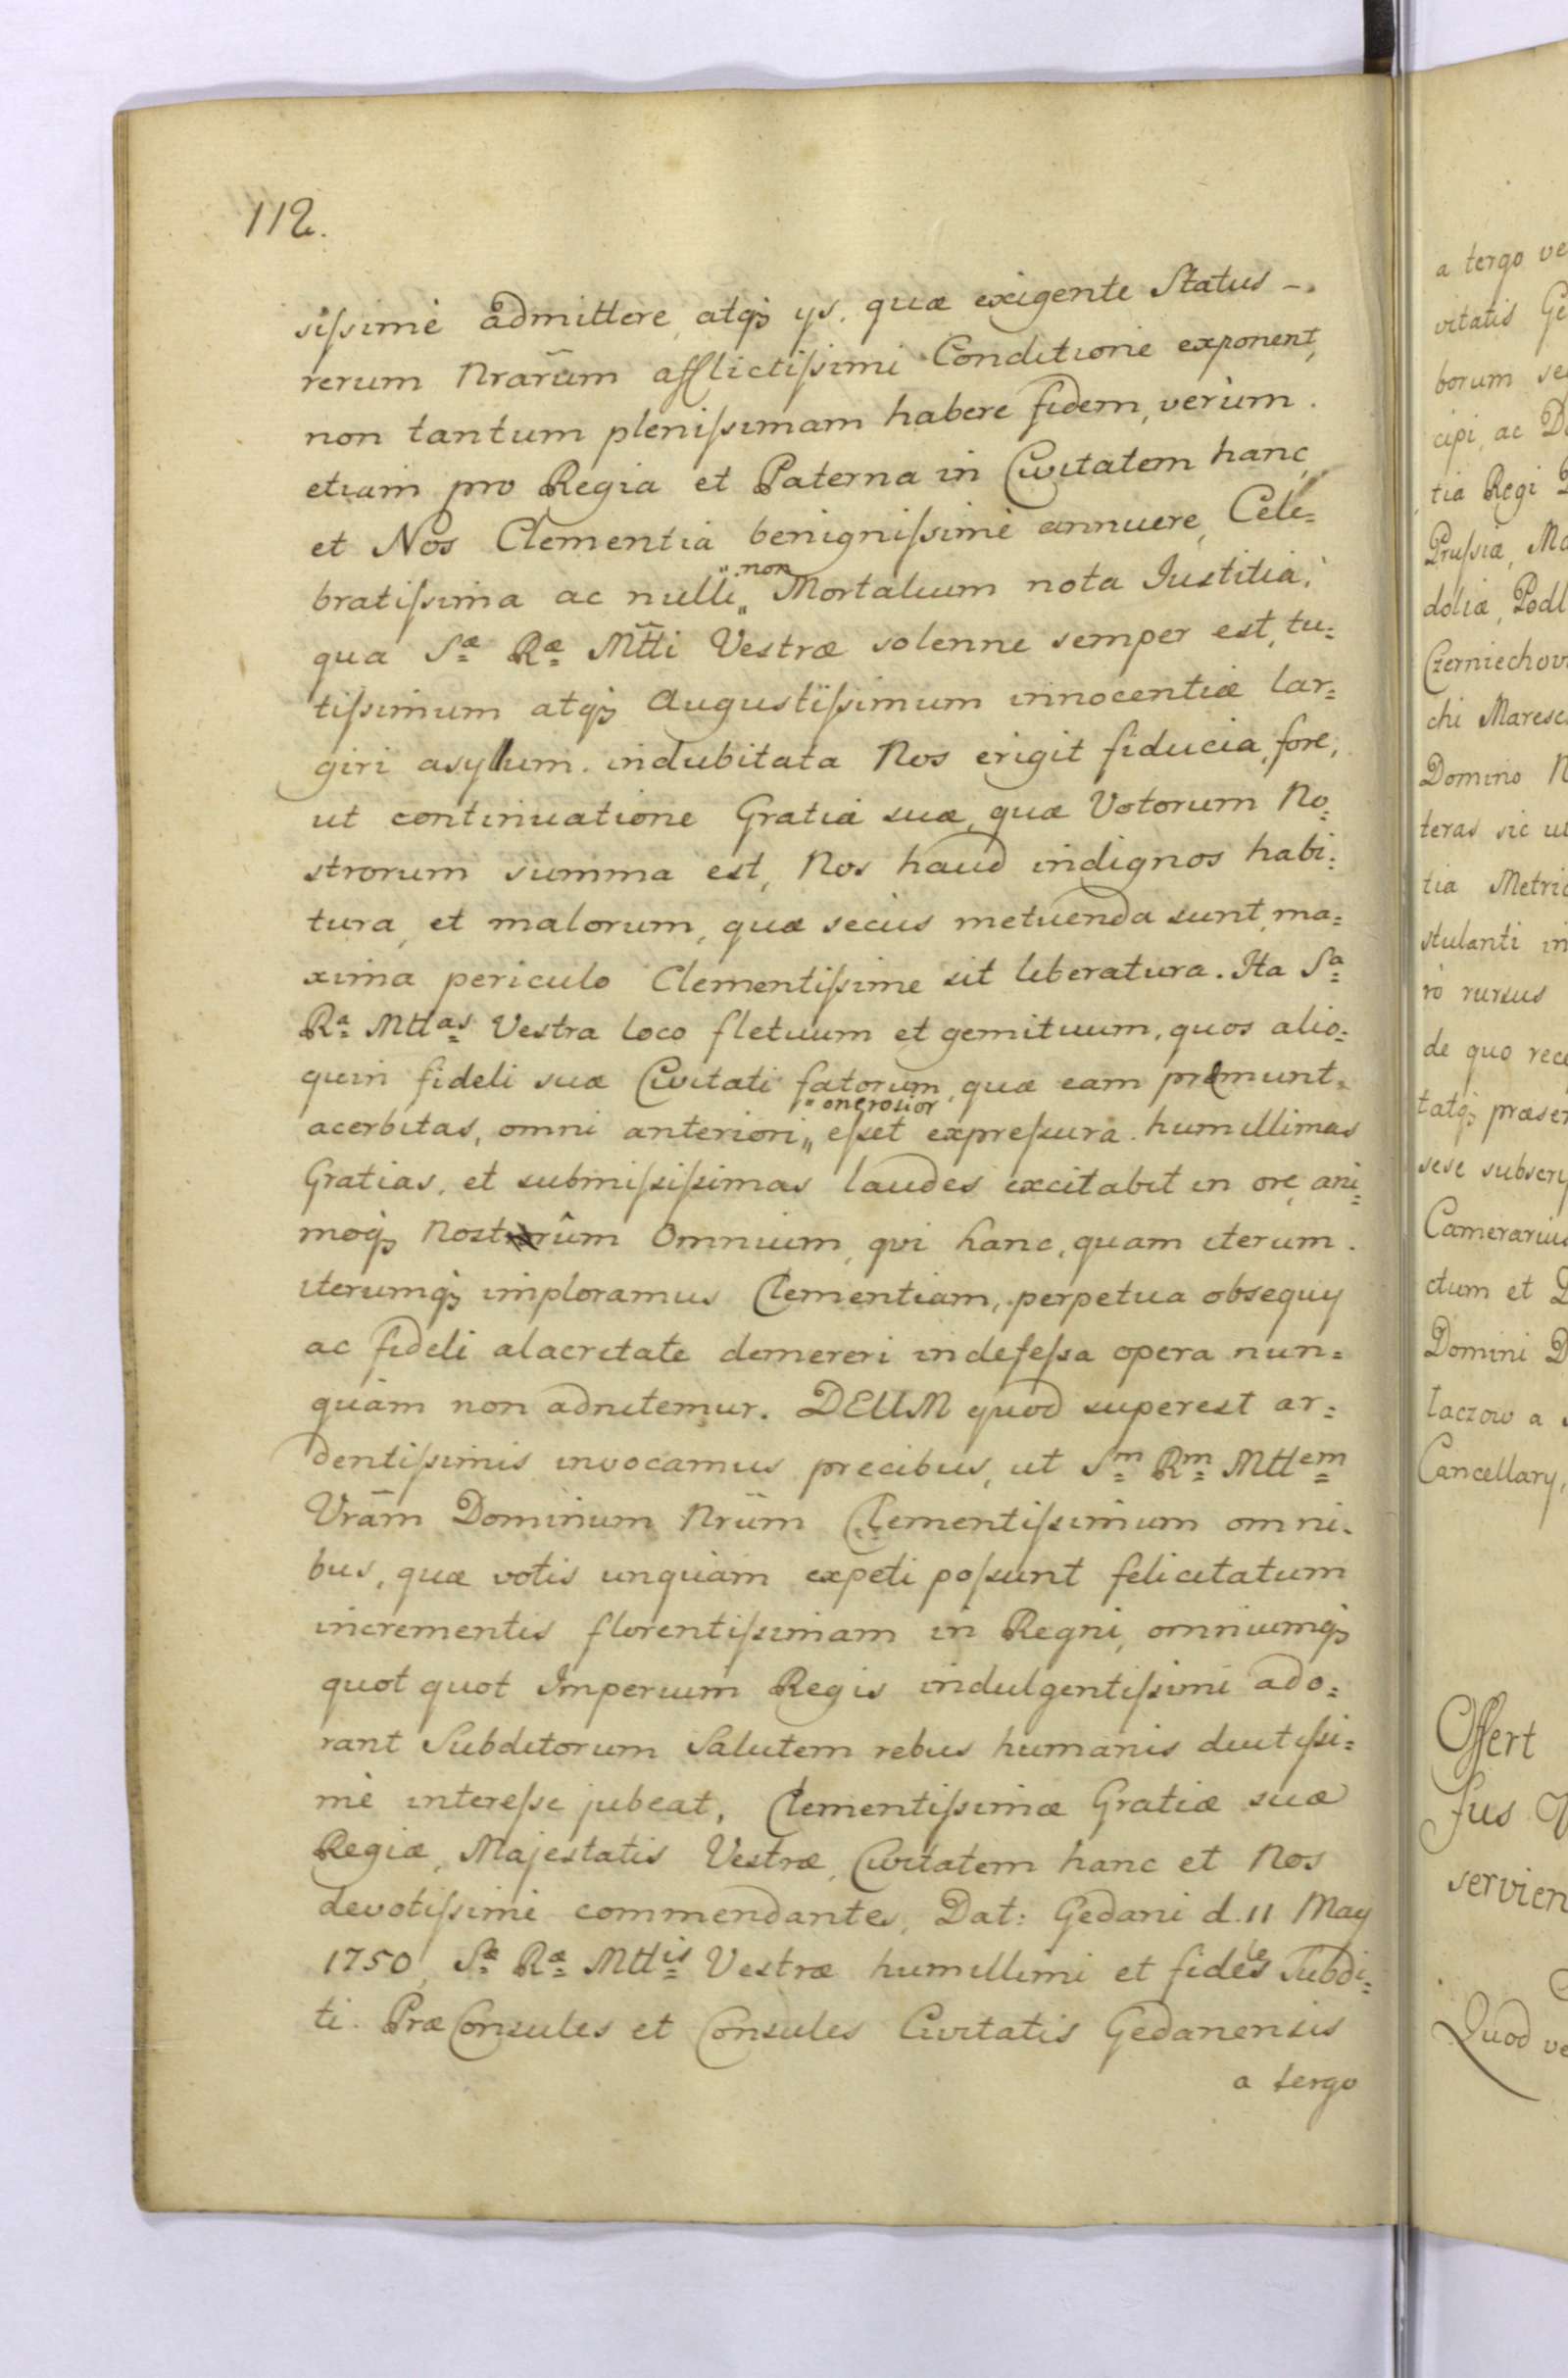 112.
siſsimè admittere, atq, ijs. quæ exigente Status -.
rerum Nrarūm afflictiſsimi Conditione exponent,
non tantum pleniſsimam habere fidem, verùm.
etiam pro Regia et Paterna in Civitatem hanc,
et Nos Clementia benigniſsimè annuere, Cele=
bratiſsima ac nulli „non Mortalium nota Iustitia,
qua Sæ Ræ Mtti Vestræ solenne semper est, tu=
tiſsimum atq, Augustiſsimum innocentiæ lar=
giri asyllum. indubitata Nos erigit fiducia, fore,
ut continuatione Gratiæ suæ, quæ Votorum No=
strorum summa est, Nos haud indignos habi=
tura, et malorum, quæ secùs metuenda sunt, ma=
xima periculo Clementiſsime sit liberatura. Ita Sa
Ra Mttas Vestra loco fletuum et gemituum, quos alio=
quin fideli suæ Civitati fatorum, quæ eam premunt,
acerbitas, omni anteriori „onerosior eſset expreſsura. humillimas
Gratias, et submiſsiſsimas laudes excitabit in ore, ani=
moq, Nostrûm Omnium, qui hanc, quam iterum.
iterumq, imploramus Clementiam, perpetua obsequij
ac fideli alacritate demereri indefeſsa opera nun=
quàm non adnitemur. DEUM quod superest ar=
dentiſsimis invocamus precibus, ut Sm Rm Mttem
Vrām Dominum Nrūm Clementiſsimum omni=
bus, quæ votis unquàm expeti poſsunt felicitatum
incrementis florentiſsimam in Regni, omniumq,
quot quot Imperium Regis indulgentiſsimi ado=
rant Subditorum Salutem rebus humanis diutiſsi=
mè intereſse jubeat, Clementiſsimæ Gratiæ suæ
Regiæ, Majestatis Vestræ, Civitatem hanc et Nos
devotiſsimè commendantes, Dat: Gedani d. 11 May
1750, Sæ Ræ Mttis Vestræ humillimi et fideles Subdi=
ti. PræConsules et Consules Civitatis Gedanensis
a tergo
a tergo ve
vitatis Ge
borum se
cipi, ac D
tia Regi
Pruſsiæ, Ma
doliæ, Podl
Czerniechov
chi Maresc
Domino N
teras sic ut
tia Metric
stulanti in
rò rursus
de quo rece
tatq, præsen
sese subscri
Camerarius
ctum et
Domini D
laczow a
Cancellarÿ,
Offert
sus
servien
Quod ve